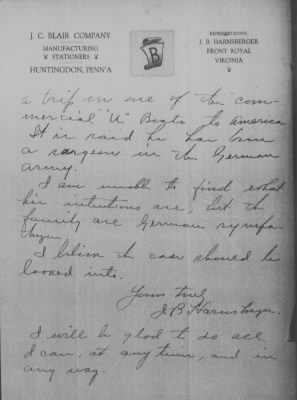 J. C. BLAIR COMPANY
MANUFACTURING
STATIONERS
HUNTINGDON, PENN'A
B
REPRESENTATIVE:
J. B. HARNSBERGER
FRONT ROYAL
VIRGINIA
a trip in one of the com-
mercial "U" Boats to America
It is said he has been
a surgeon in the German
army.
I am unable to find what
his intentions are, but the
family are German sympa-
thizers
I believe the case should be
looked into.
Yours truly,
J B Harnsberger.
I will be glad to do all
I can, at any time, and in
any way.